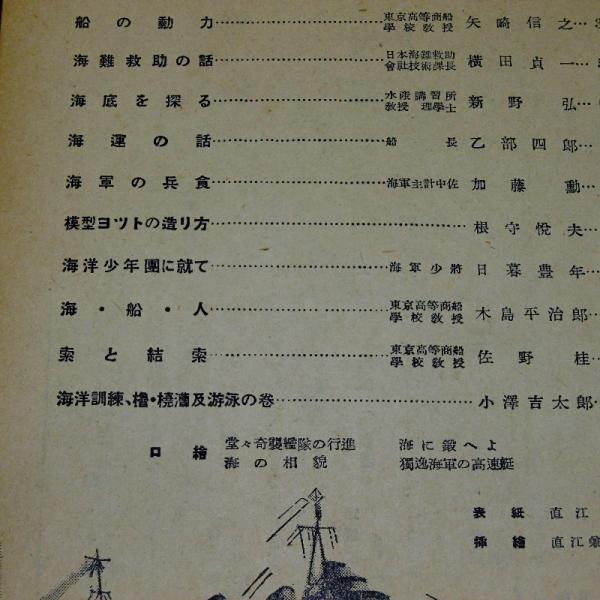 船の動力 東京高等商船學校教授 矢崎信之
海難救助の話 日本海難救助會社技術課長 横田貞一
海底を探る 水産講習所教授 理學士 新野弘
海運の話 船長 乙部四郎
海軍の兵食 海軍主計中佐 加藤勳
模型ヨツトの造り方 根守悅夫
海洋少年團に就て 海軍少將 日暮豊年
海・船・人 東京高等商船學校教授 木島平治郎
索と結索 東京高等商船學校教授 佐野桂
海洋訓練、櫓・橈漕及游泳の卷 小澤吉太郎
口繪 堂々奇襲艦隊の行進 海に鍛へよ
海の相貌 獨逸海軍の高速艇
表紙 直江
揷繪 直江